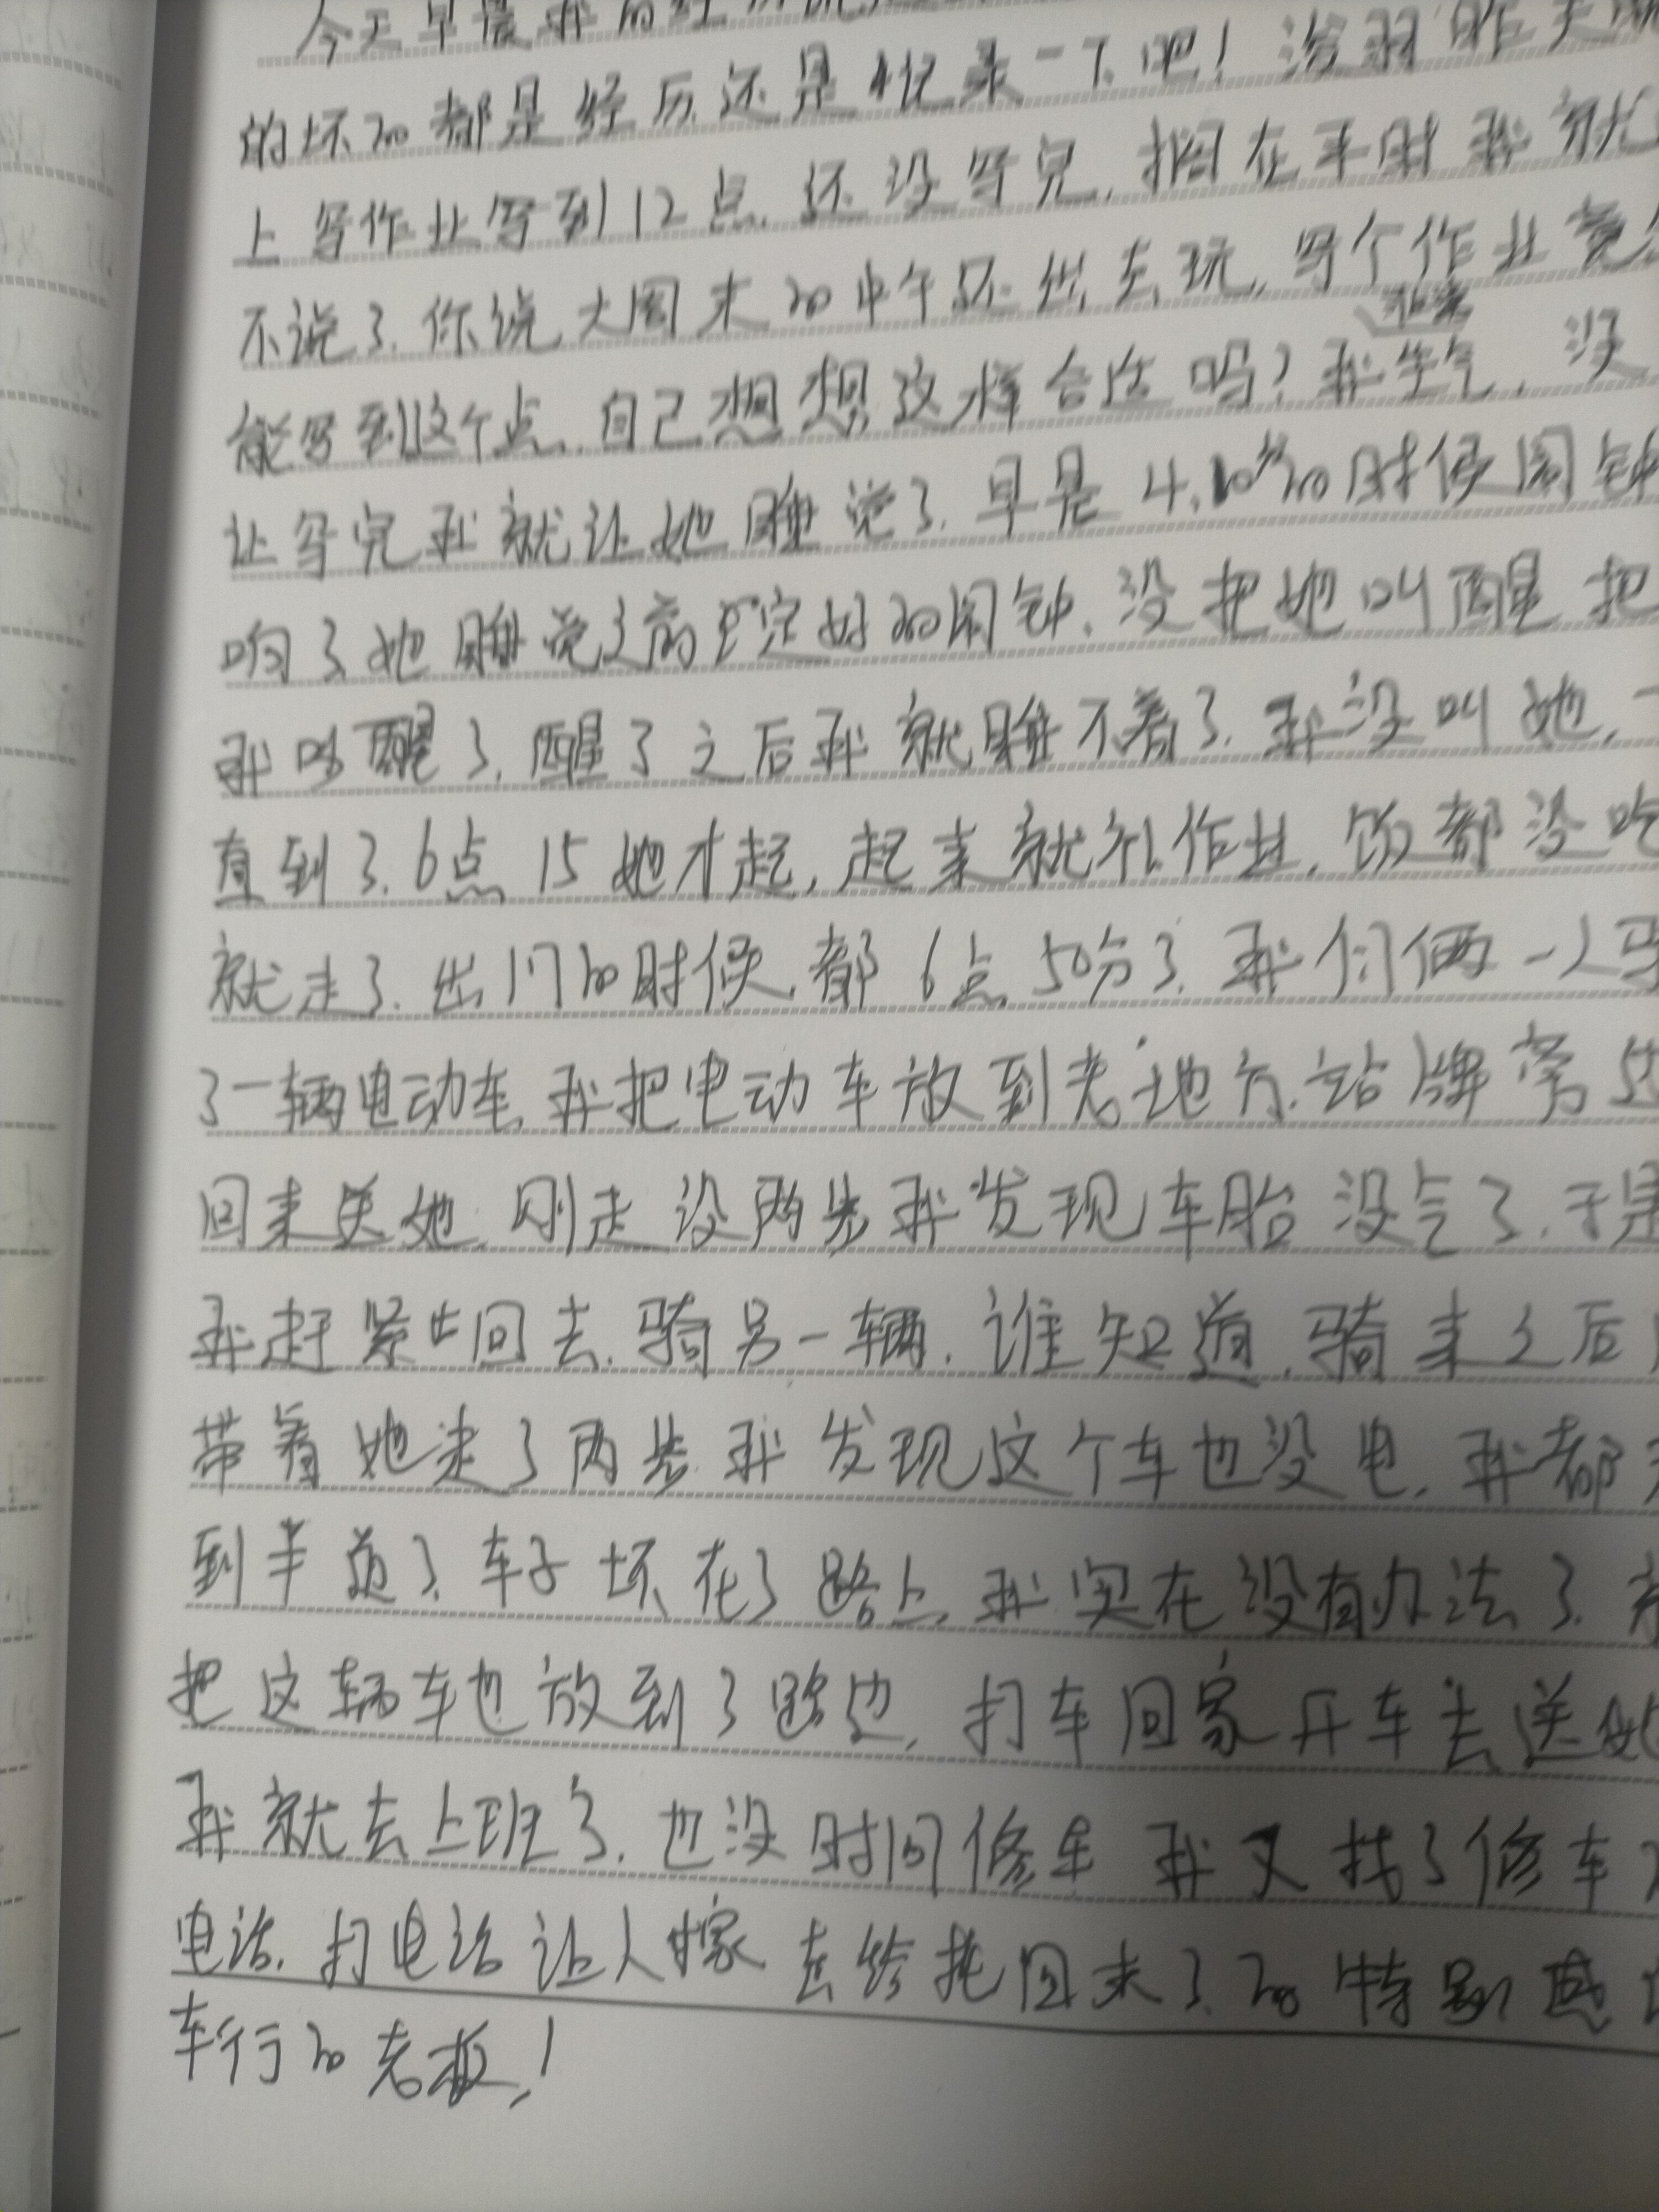 今天早晨我的经历
的坏的都是经历还是记录一下吧！ 昨天
上写作业写到12点，还没写完，搁在平时我就
不说了，你说大周末的中午还出去玩，写个作业竟
能写到这个点，自己想想这样合适吗？我生气，没
让写完我就让她睡觉了，早晨4.10分的时候闹钟
响了她睡觉之前定好的闹钟，没把她叫醒把
我叫醒了，醒了之后我就睡不着了，我没叫她，一
直到了6点15她才起，起来就补作业，饭都没吃
就走了，出门的时候，都6点50分了，我们俩一人
了一辆电动车，我把电动车放到老地方，站牌旁边
回来送她，刚走没两步我发现车胎没气了，于是
我赶紧回去，骑另一辆，谁知道，骑来之后
带着她走了两步我发现这个车也没电，我都
到半道了，车子坏在了路上，我实在没有办法了，
把这辆车也放到了路边，打车回家开车去送她
我就去上班了，也没时间修车 我又找了修车
电话，打电话让人家去给拖回来了，特别感
车行的老板！